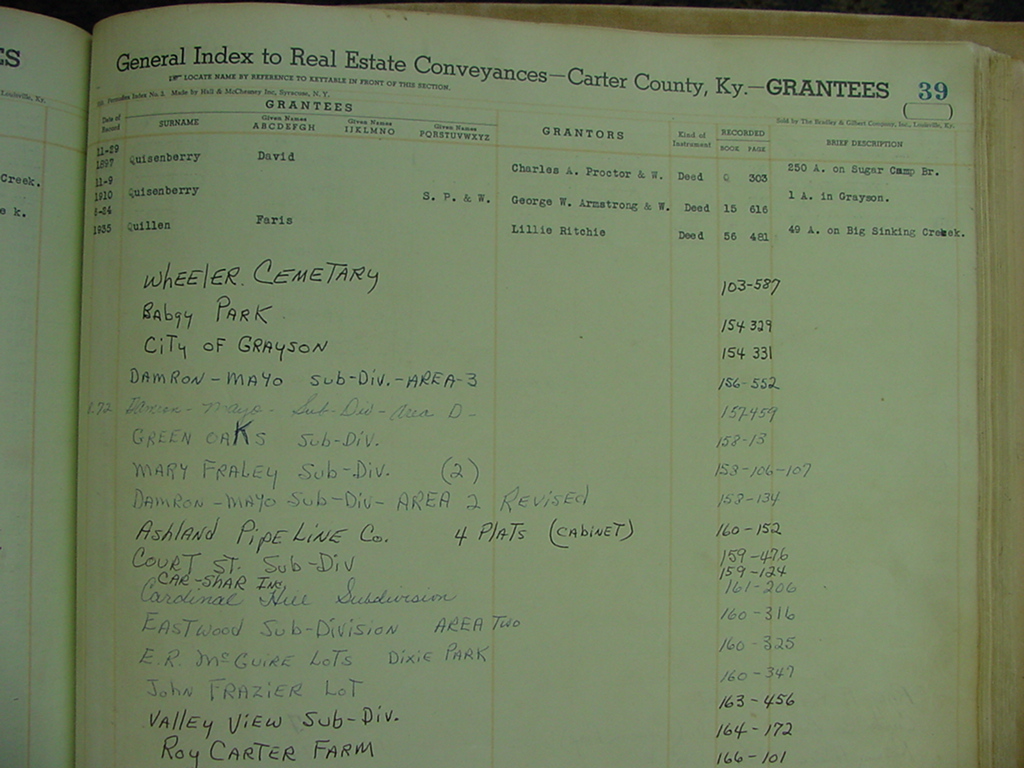 ES
Louisville, Ky.
Creek.
e k.
General Index to Real Estate Conveyances—Carter County, Ky.—GRANTEES 39
LOCATE NAME BY REFERENCE TO KEYTABLE IN FRONT OF THIS SECTION.
Index No. 3. Made by Hall & McChesney Inc, Syracuse, N. Y.
Sold by The Bradley & Gilbert Company, Inc., Louisville, Ky.
GRANTEES
Date of Record SURNAME Given Names ABCDEFGH Given Names IJKLMNO Given Names PQRSTUVWXYZ GRANTORS Kind of Instrument RECORDED BOOK PAGE BRIEF DESCRIPTION
11-29
1897 Quisenberry David Charles A. Proctor & W. Deed Q 303 250 A. on Sugar Camp Br.
11-9
1910 Quisenberry S. P. & W. George W. Armstrong & W. Deed 15 616 1 A. in Grayson.
8-24
1935 Quillen Faris Lillie Ritchie Deed 56 481 49 A. on Big Sinking Creek.
WHEELER. CEMETARY 103-587
Babgy PARK. 154 329
CiTy OF GRAYSON 154 331
DAMRON-MAYO SUB-DIV.-AREA-3 156-552
1.72 Damron-Mayo-Sub-Div-Area D- 157-459
GREEN OAKS SUB-DIV. 158-13
MARY FRALEY SUB-DIV. (2) 158-106-107
DAMRON-MAYO SUB-DIV-AREA 2 REVISED 158-134
AShLAND PIPE LINE Co. 4 PlATS (CABINET) 160-152
COURT ST. SUB-DIV 159-476
159-124
CAR-SHAR INC, 161-206
Cardinal Hill Subdivision
EASTWOOD SUB-DIVISION AREA TWO 160-316
E.R. McGUIRE LOTS DIXIE PARK 160-325
JOHN FRAZIER LOT 160-347
VALLEY VIEW SUB-DIV. 163-456
164-172
ROY CARTER FARM 166-101